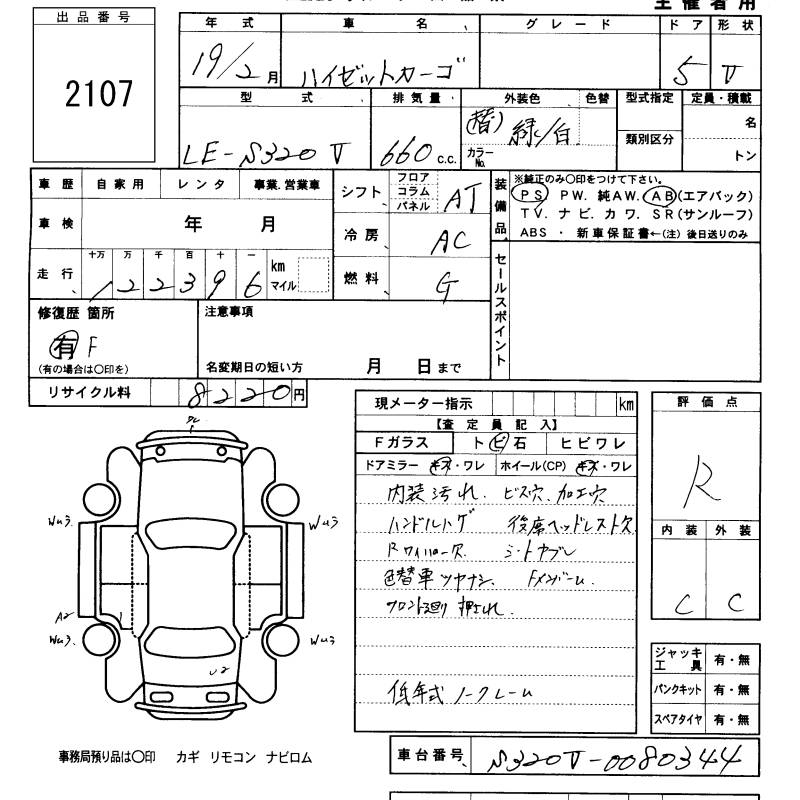 主催者用
出品番号
2107
年式 車名 グレード ドア 形状
19/2月 ハイゼットカーゴ 5 V
型式 排気量 外装色 色替 型式指定 定員・積載
LE-S320V 660 c.c. (替) 緑/白 カラーNo. 類別区分 名
トン
車歴 自家用 レンタ 事業.営業車
車検 年 月
走行 十万 万 千 百 十 一 km マイル
122396
シフト フロア コラム パネル AT
冷房 AC
燃料 G
装備品
※純正のみ〇印をつけて下さい。
PS PW. 純AW. AB(エアバック)
TV. ナビ. カワ. SR(サンルーフ)
ABS ・ 新車保証書←(注) 後日送りのみ
セールスポイント
修復歴 箇所
有 F
(有の場合は〇印を)
注意事項
名変期日の短い方 月 日まで
リサイクル料 8220円
現メーター指示 km
【査定員記入】
Fガラス トビ石 ヒビワレ
ドアミラー キズ・ワレ ホイール(CP) キズ・ワレ
内装汚れ. ビス穴. 加工穴
ハンドルハゲ 後席ヘッドレスト欠
Rワイパー欠 シートヤブレ
色替車ツヤナシ. Fメンバー
フロント廻り 押され.
低年式 ノークレーム
評価点
R
内装 外装
C C
Wウ3 Wウ3
A2
Wウ3 Wウ3
U2
ジャッキ工具 有・無
パンクキット 有・無
スペアタイヤ 有・無
事務局預り品は〇印 カギ リモコン ナビロム
車台番号 S320V-0080344